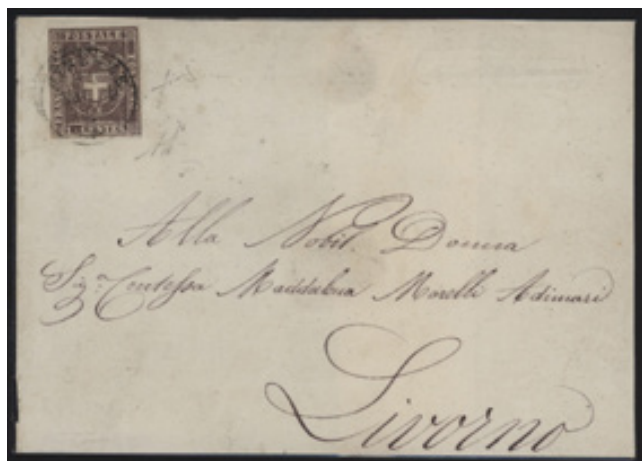 POSTALE
CENTES
Alla Nobil. Donna
Sig.ra Contessa Maddalena Morelli Adimari
Livorno